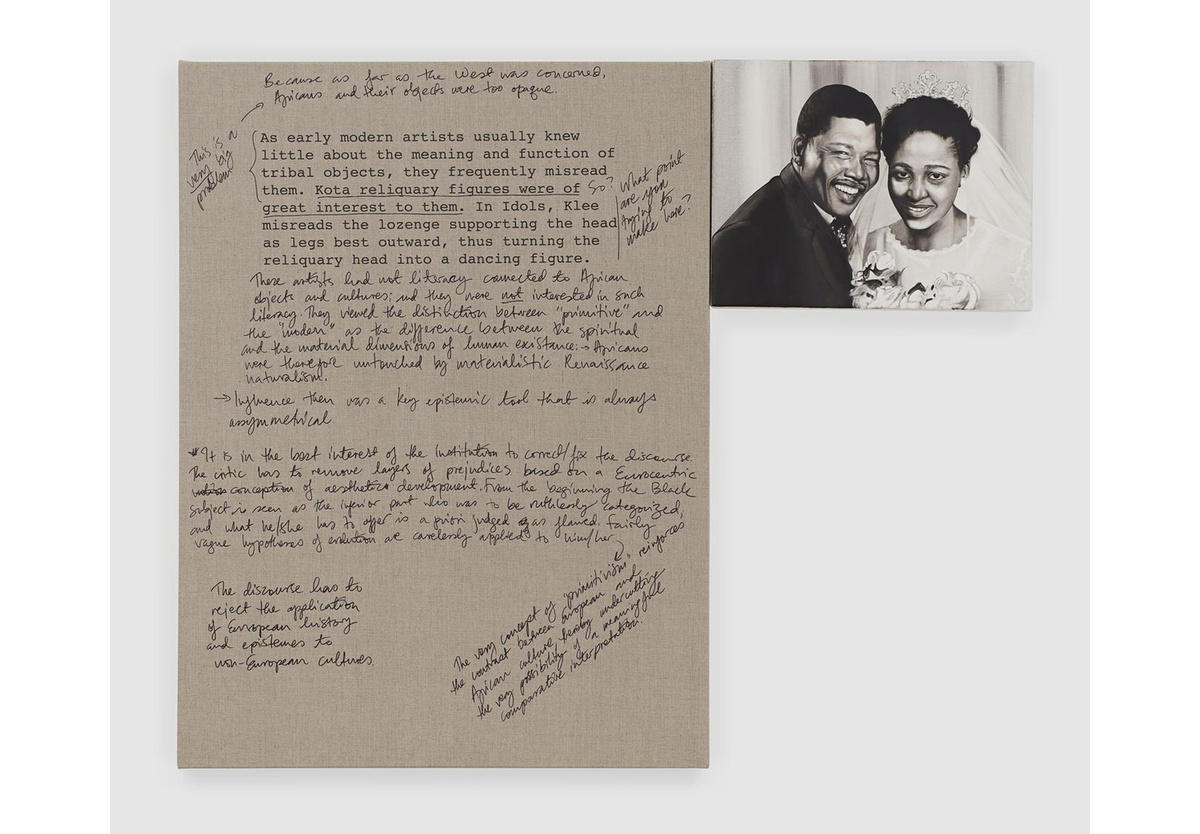 Because as far as the West was concerned,
Africans and their objects were too opaque.
This is a
very big
problem!
As early modern artists usually knew
little about the meaning and function of
tribal objects, they frequently misread
them. Kota reliquary figures were of
great interest to them. In Idols, Klee
misreads the lozenge supporting the head
as legs best outward, thus turning the
reliquary head into a dancing figure.
So? What point
are you
trying to
make here?
These artists had not literacy connected to African
objects and cultures; and they were not interested in such
literacy. They viewed the distinction between "primitive" and
the "modern" as the difference between the spiritual
and the material dimensions of human existance:→ Africans
were therefore untouched by materialistic Renaissance
naturalism.
→ Influence then was a key epistemic tool that is always
assymmetrical.
It is in the best interest of the institution to correct/fix the discourse.
The critic has to remove layers of prejudices based on a Eurocentric
conception of aesthetic development. From the beginning the Black
subject is seen as the inferior part who was to be ruthlessly categorized,
and what he/she has to offer is a priori judged as flawed. Fairly
vague hypotheses of evolution are carelessly applied to him/her
The discourse has to
reject the application
of European history
and epistemes to
non-European cultures.
The very concept of "primitivism" reinforces
the contrast between European and
African culture, thereby undercutting
the very possibility of a meaningful
comparative interpretation.